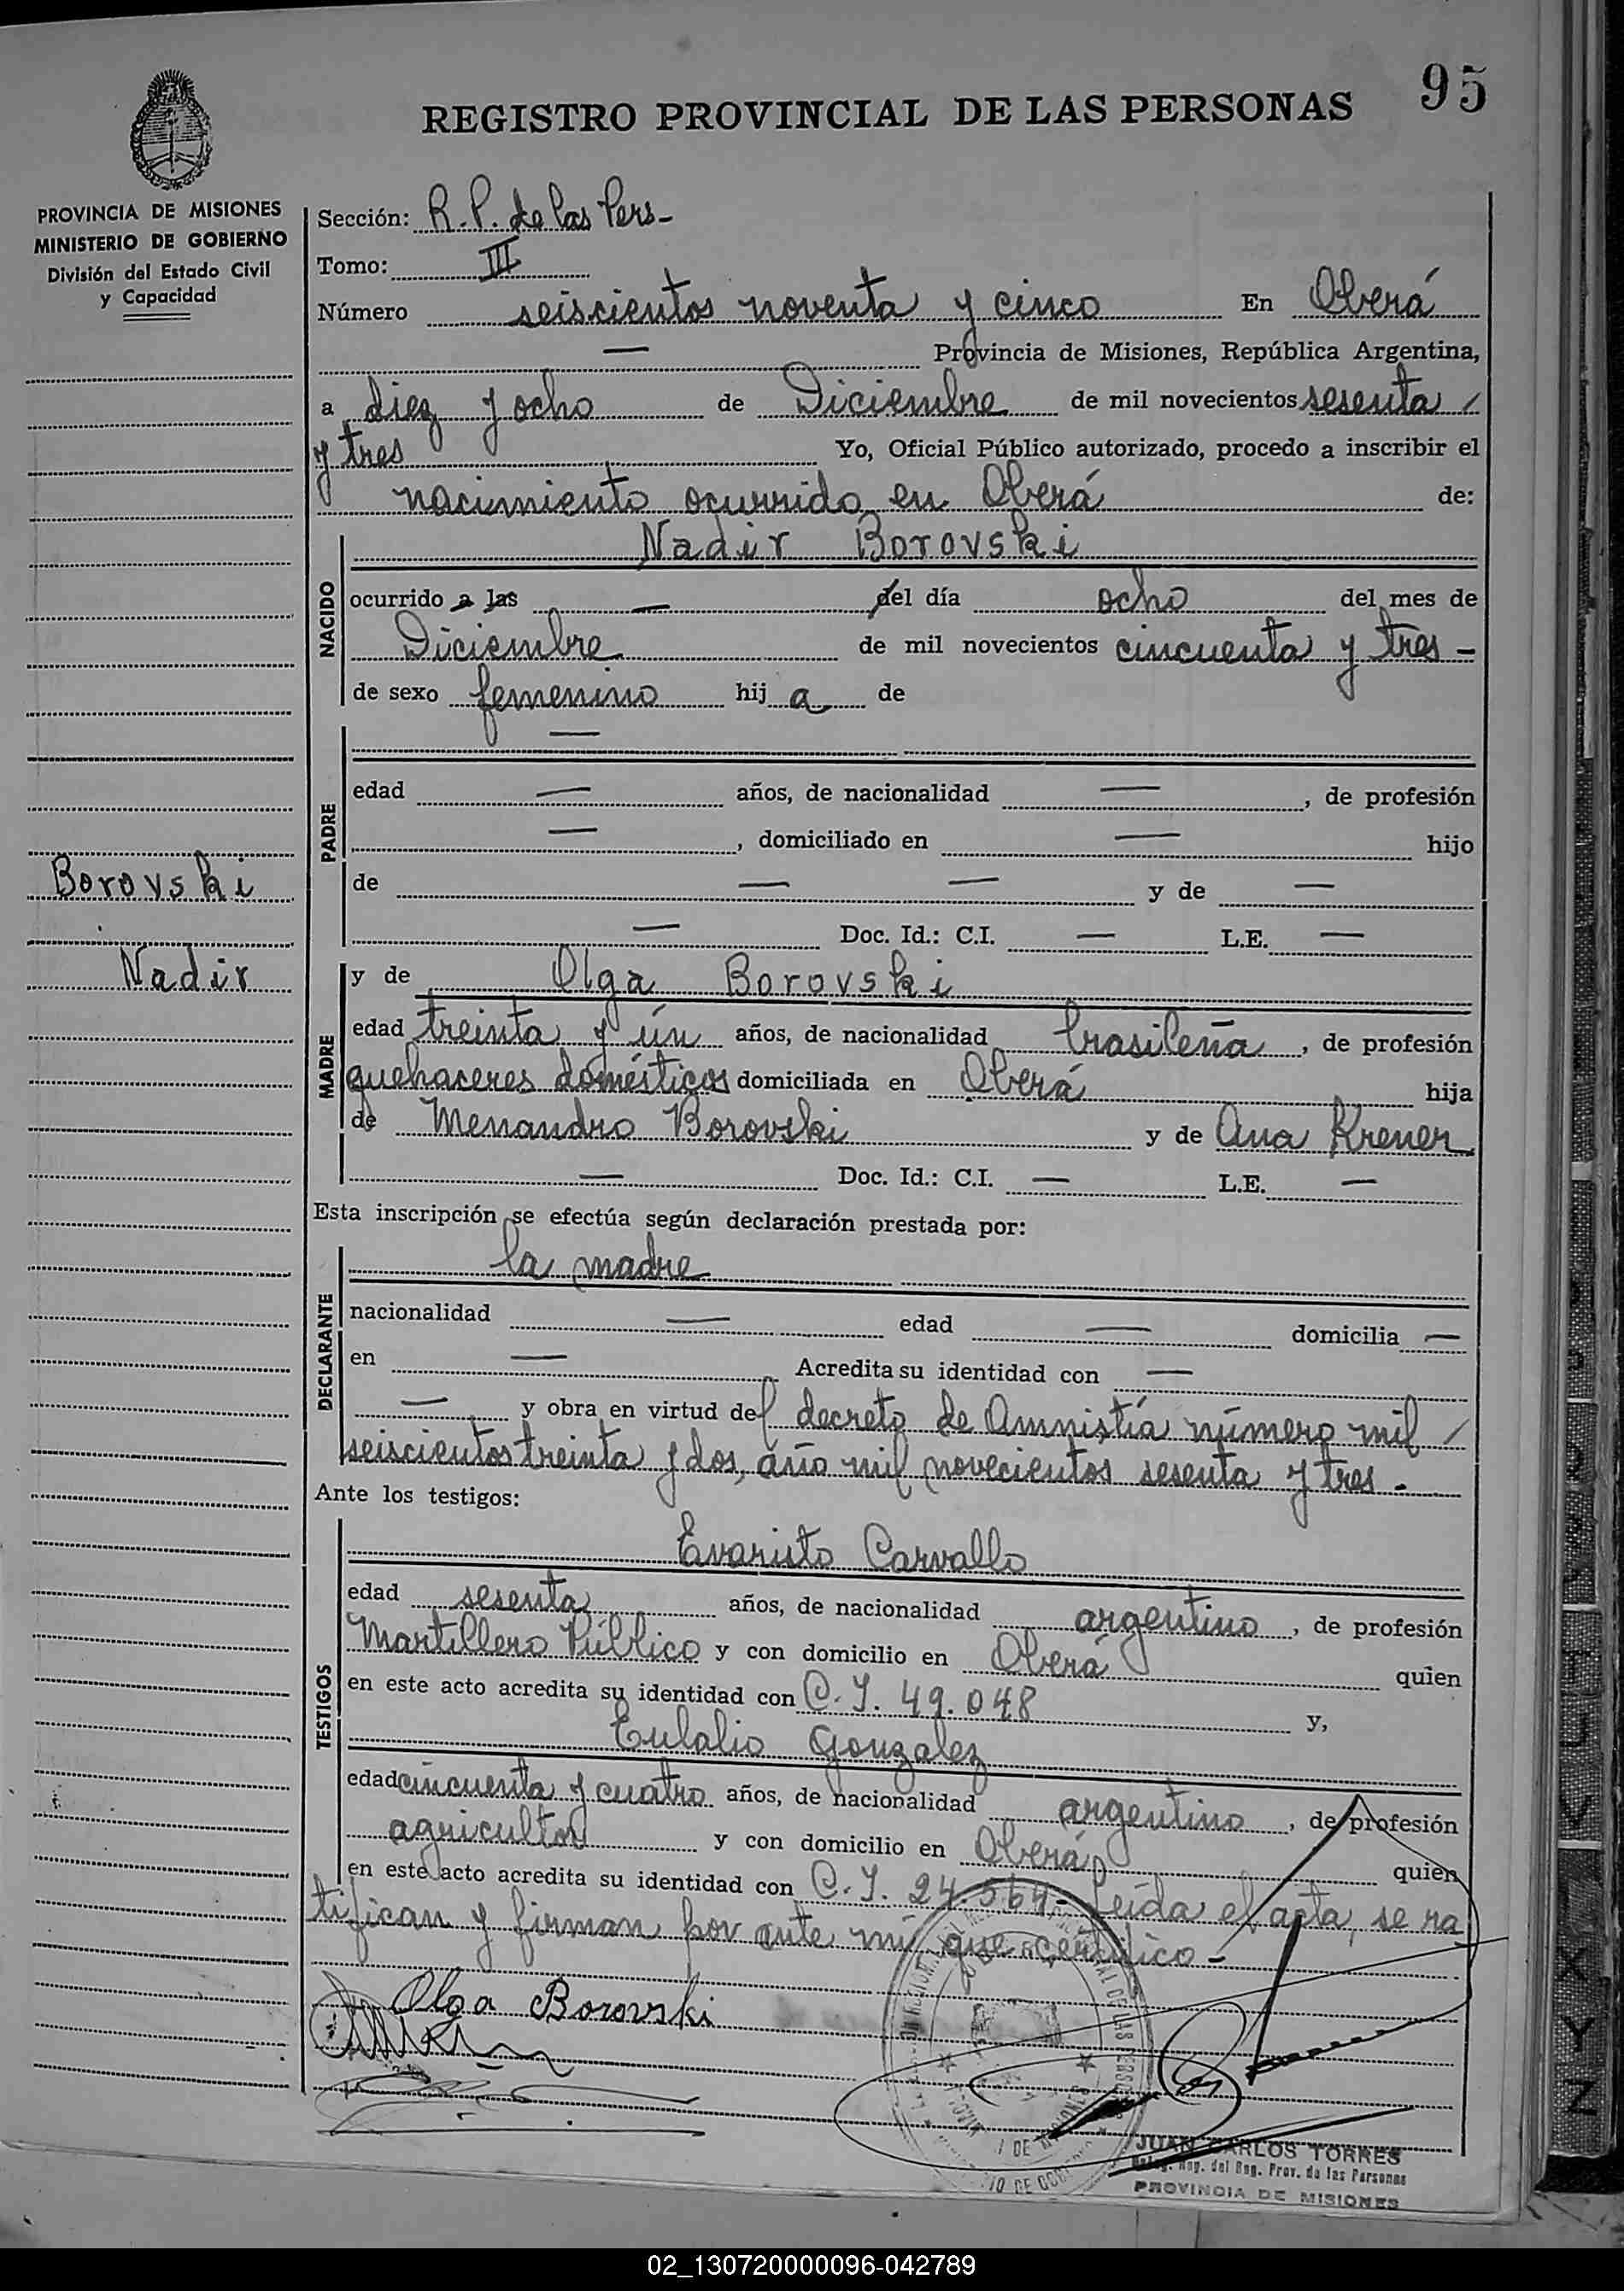 95
REGISTRO PROVINCIAL DE LAS PERSONAS
PROVINCIA DE MISIONES
MINISTERIO DE GOBIERNO
División del Estado Civil
y Capacidad
Borovski
Nadir
Sección: R.P. de las Pers-
Tomo: III
Número seiscientos noventa y cinco En Oberá
— Provincia de Misiones, República Argentina,
a diez y ocho de Diciembre de mil novecientos sesenta /
y tres Yo, Oficial Público autorizado, procedo a inscribir el
nacimiento ocurrido en Oberá de:
NACIDO
Nadir Borovski
ocurrido a las — del día ocho del mes de
Diciembre de mil novecientos cincuenta y tres -
de sexo femenino hij a de
PADRE
—
edad — años, de nacionalidad —, de profesión
—, domiciliado en — hijo
de — — y de —
— Doc. Id.: C.I. — L.E. —
MADRE
y de Olga Borovski
edad treinta y ún años, de nacionalidad brasileña, de profesión
quehaceres domésticos domiciliada en Oberá hija
de Menandro Borovski y de Ana Krener
— Doc. Id.: C.I. — L.E. —
Esta inscripción se efectúa según declaración prestada por:
DECLARANTE
la madre
nacionalidad — edad — domicilia —
en — Acredita su identidad con —
— y obra en virtud del decreto de Amnistía número mil /
seiscientos treinta y dos, año mil novecientos sesenta y tres -
Ante los testigos:
TESTIGOS
Evaristo Carvallo
edad sesenta años, de nacionalidad argentino, de profesión
Martillero Público y con domicilio en Oberá quien
en este acto acredita su identidad con C.I. 49.048 y,
Eulalio Gonzalez
edad cincuenta y cuatro años, de nacionalidad argentino, de profesión
agricultor y con domicilio en Oberá quien
en este acto acredita su identidad con C.I. 24.564- Leída el acta, se ra
tifican y firman por ante mí que certifico -
Olga Borovski
JUAN CARLOS TORRES
Reg. del Reg. Prov. de las Personas
PROVINCIA DE MISIONES
X
Y
Z
02_130720000096-042789